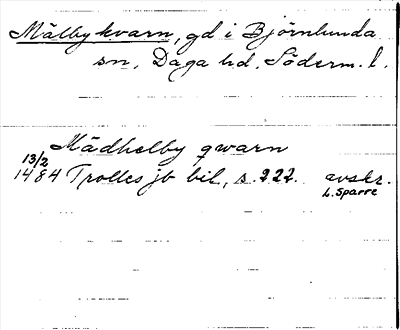 Mälby kvarn, gd i Björnlunda
sn, Daga hd, Söderm. l.
Mädhelby qwarn
13/2
1484 Trolles jb bil, s. 222. avskr.
L. Sparre